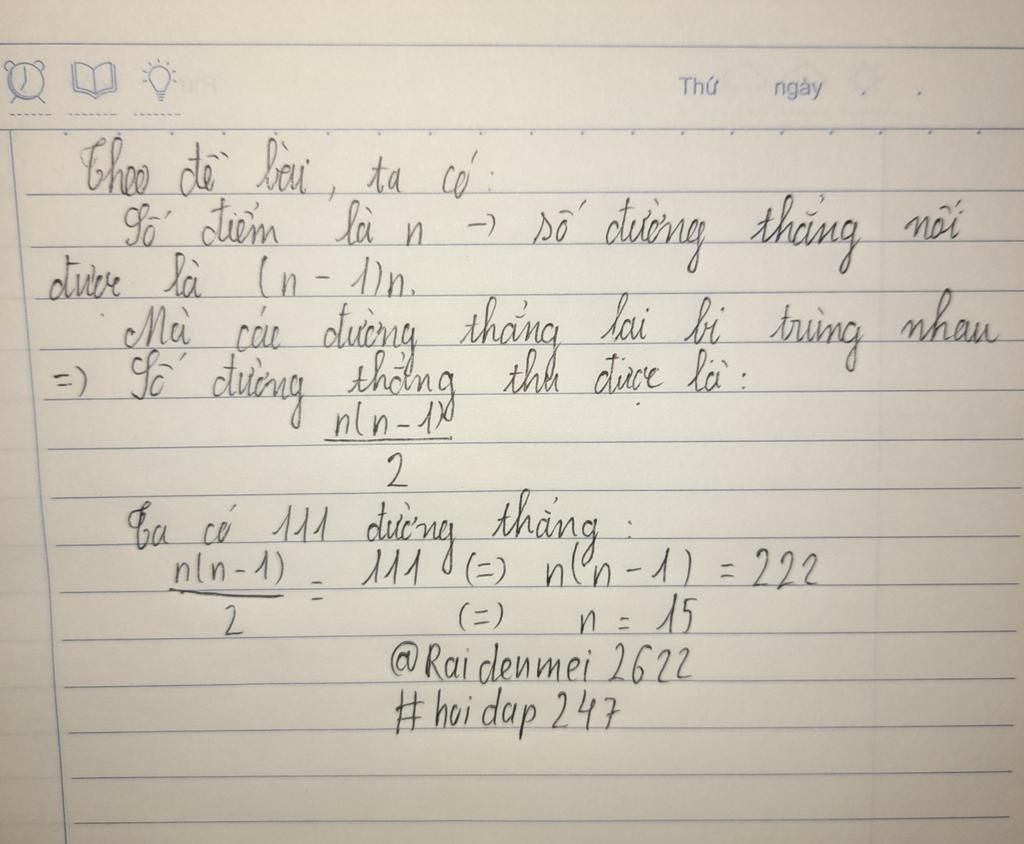 Thứ ngày
Theo đề bài, ta có:
Số điểm là n -> số đường thẳng nối
được là (n - 1)n.
Mà các đường thẳng lại bị trùng nhau
=> Số đường thẳng thu được là:
n(n-1)
2
Ta có 111 đường thẳng:
n(n-1)/2 = 111 (=) n(n-1) = 222
(=) n = 15
@Raidenmei2622
#hoidap247